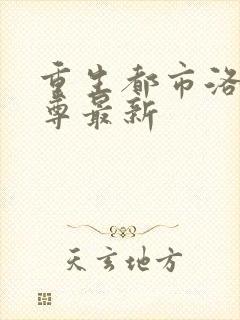 重生都市洛
尊最新
天玄地方